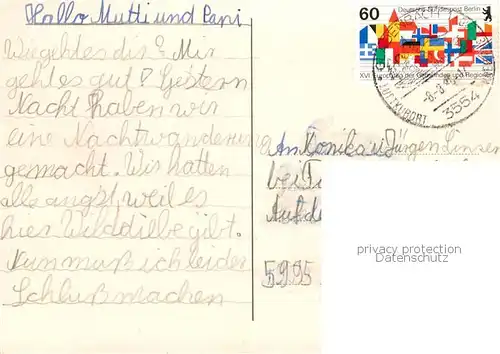 Hallo Mutti und Papi
Wie geht es dir? Mir
geht es gut! Gestern
Nacht haben wir
eine Nachtwanderung
gemacht. Wir hatten
alle angst, weil es
hier Wilddiebe gibt.
Nun muß ich leider
Schluß machen
60 Deutsche Bundespost Berlin
XVI. Europatag der Gemeinden und Regionen
LUFTKURORT
3554
An Monika u Jürgen Linsen
bei
Auf d
5995
privacy protection
Datenschutz